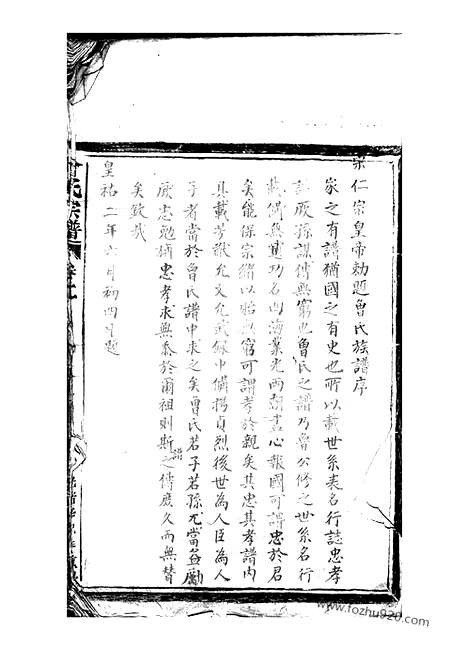 宋仁宗皇帝勅題魯氏族譜序
家之有譜猶國之有史也所以載世系表名行誌忠孝
厥孫謀傳無窮也魯氏之譜乃魯公修之世系名行
載備無遺功名向海業光兩朝盡心報國可謂忠於君
矣能保宗緒以貽無窮可謂孝於親矣其忠其孝譜內
其載芳徽允文允武錄中備揚貞烈後世為人臣為人
子者當於魯氏譜中求之矣魯氏若子若孫尤當益勵
厥忠勉循忠孝求無忝於爾祖則斯譜之傳庶久而無替
矣敬哉
皇祐二年六月初四日題
氏宗譜
www.fozhu920.com